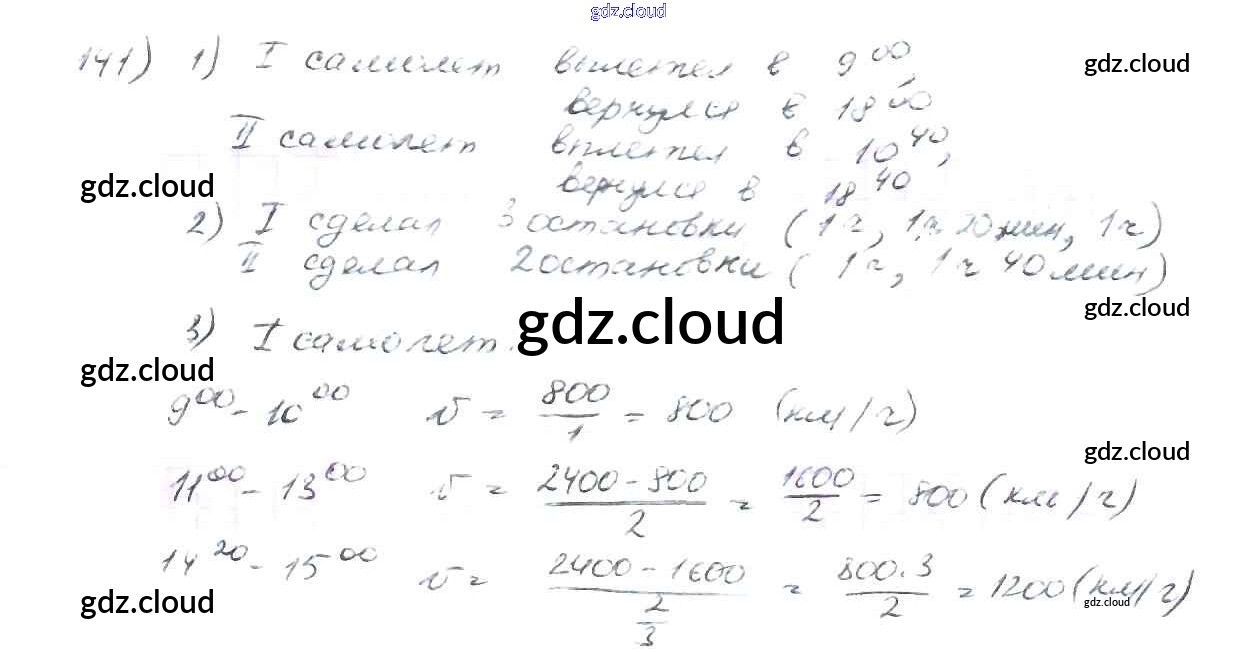 gdz.cloud
141) 1) I самолет вылетел в 9⁰⁰, gdz.cloud
вернулся в 18⁰⁰
II самолет вылетел в 10⁴⁰,
gdz.cloud вернулся в 18⁴⁰
2) I сделал 3 остановки (1 ч, 1 ч 20 мин, 1 ч)
II сделал 2 остановки (1 ч, 1 ч 40 мин)
gdz.cloud
3) I самолет. gdz.cloud
gdz.cloud
9⁰⁰ - 10⁰⁰ v = 800/1 = 800 (км/ч)
gdz.cloud
11⁰⁰ - 13⁰⁰ v = (2400 - 800)/2 = 1600/2 = 800 (км/ч)
14²⁰ - 15⁰⁰ v = (2400 - 1600)/(2/3) = (800 . 3)/2 = 1200 (км/ч)
gdz.cloud gdz.cloud